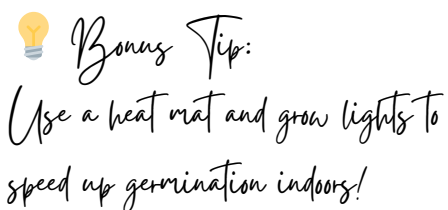 Bonus Tip:
Use a heat mat and grow lights to
speed up germination indoors!